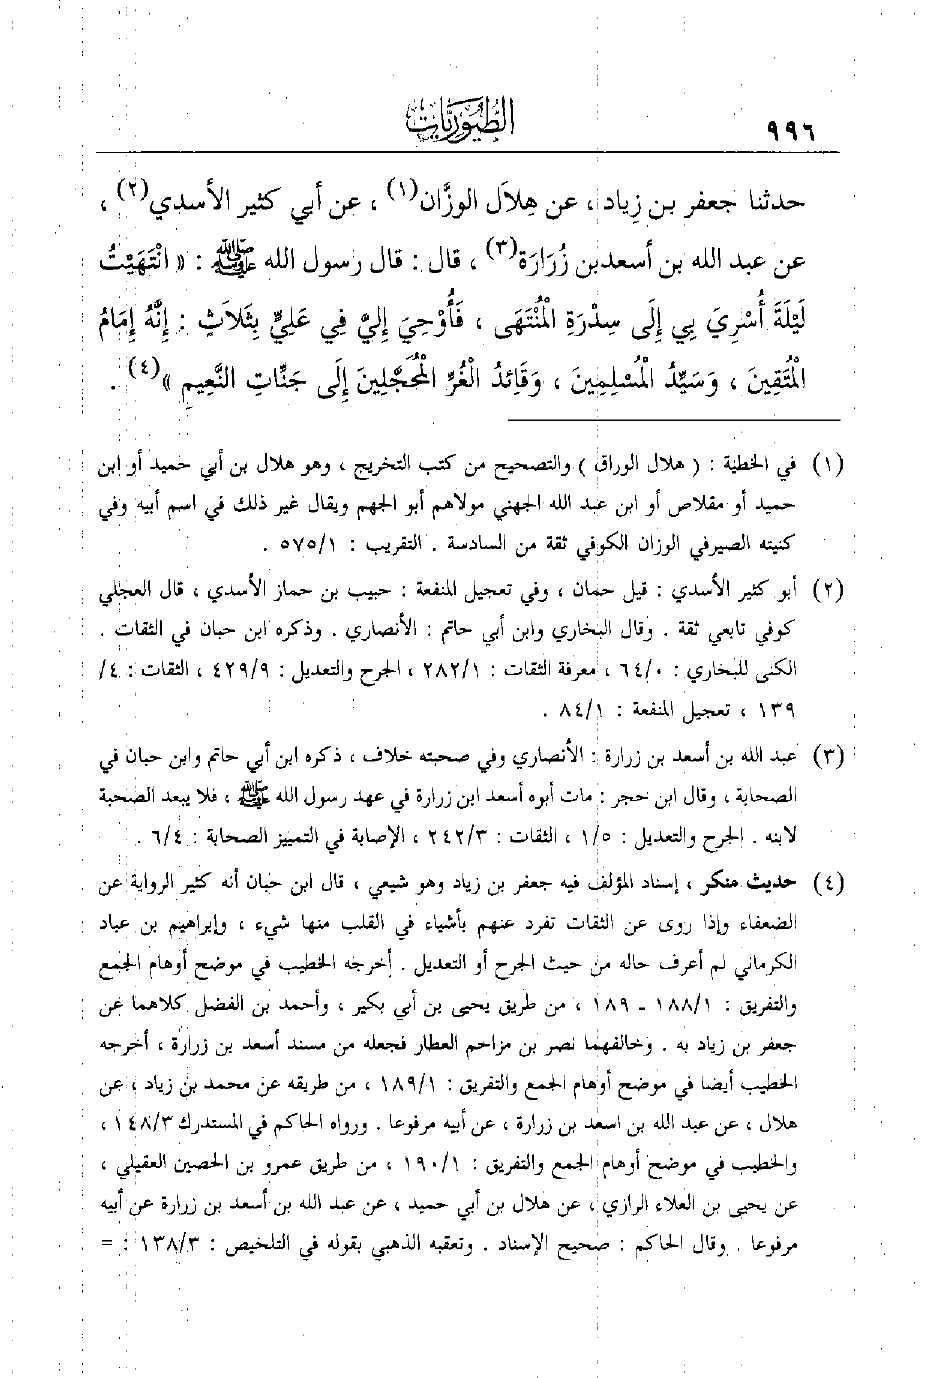 ٩٩٦
الطيوريات
حدثنا جعفر بن زياد ، عن هِلاَل الوزَّان(١) ، عن أبي كثير الأسدي(٢) ،
عن عبد الله بن أسعد بن زُرَارَة(٣) ، قال : قال رسول الله ﷺ : « انْتَهَيْتُ
لَيْلَةَ أُسْرِيَ بِي إِلَى سِدْرَةِ الْمُنْتَهَى ، فَأُوْحِيَ إِلَيَّ فِي عَلِيٍّ بِثَلاَثٍ : إِنَّهُ إِمَامُ
الْمُتَّقِينَ ، وَسَيِّدُ الْمُسْلِمِينَ ، وَقَائِدُ الْغُرِّ الْمُحَجَّلِينَ إِلَى جَنَّاتِ النَّعِيمِ »(٤) .
(١) في الخطية : ( هلال الوراق ) والتصحيح من كتب التخريج ، وهو هلال بن أبي حميد أو ابن
حميد أو مقلاص أو ابن عبد الله الجهني مولاهم أبو الجهم ويقال غير ذلك في اسم أبيه وفي
كنيته الصيرفي الوزان الكوفي ثقة من السادسة . التقريب : ٥٧٥/١ .
(٢) أبو كثير الأسدي : قيل حمان ، وفي تعجيل المنفعة : حبيب بن حماز الأسدي ، قال العجلي
كوفي تابعي ثقة . وقال البخاري وابن أبي حاتم : الأنصاري . وذكره ابن حبان في الثقات .
الكنى للبخاري : ٦٤/٠ ، معرفة الثقات : ٢٨٢/١ ، الجرح والتعديل : ٤٢٩/٩ ، الثقات : ٤/
١٣٩ ، تعجيل المنفعة : ٨٤/١ .
(٣) عبد الله بن أسعد بن زرارة : الأنصاري وفي صحبته خلاف ، ذكره ابن أبي حاتم وابن حبان في
الصحابة ، وقال ابن حجر : مات أبوه أسعد ابن زرارة في عهد رسول الله ﷺ ، فلا يبعد الصحبة
لابنه . الجرح والتعديل : ١/٥ ، الثقات : ٢٤٢/٣ ، الإصابة في التمييز الصحابة : ٦/٤ .
(٤) حديث منكر ، إسناد المؤلف فيه جعفر بن زياد وهو شيعي ، قال ابن حبان أنه كثير الرواية عن
الضعفاء وإذا روى عن الثقات تفرد عنهم بأشياء في القلب منها شيء ، وإبراهيم بن عباد
الكرماني لم أعرف حاله من حيث الجرح أو التعديل . أخرجه الخطيب في موضح أوهام الجمع
والتفريق : ١٨٨/١ - ١٨٩ ، من طريق يحيى بن أبي بكير ، وأحمد بن الفضل كلاهما عن
جعفر بن زياد به . وخالفهما نصر بن مزاحم العطار فجعله من مسند أسعد بن زرارة ، أخرجه
الخطيب أيضا في موضح أوهام الجمع والتفريق : ١٨٩/١ ، من طريقه عن محمد بن زياد ، عن
هلال ، عن عبد الله بن اسعد بن زرارة ، عن أبيه مرفوعا . ورواه الحاكم في المستدرك ١٤٨/٣ ،
والخطيب في موضح أوهام الجمع والتفريق : ١٩٠/١ ، من طريق عمرو بن الحصين العقيلي ،
عن يحيى بن العلاء الرازي ، عن هلال بن أبي حميد ، عن عبد الله بن أسعد بن زرارة عن أبيه
مرفوعا . وقال الحاكم : صحيح الإسناد . وتعقبه الذهبي بقوله في التلخيص : ١٣٨/٣ : =